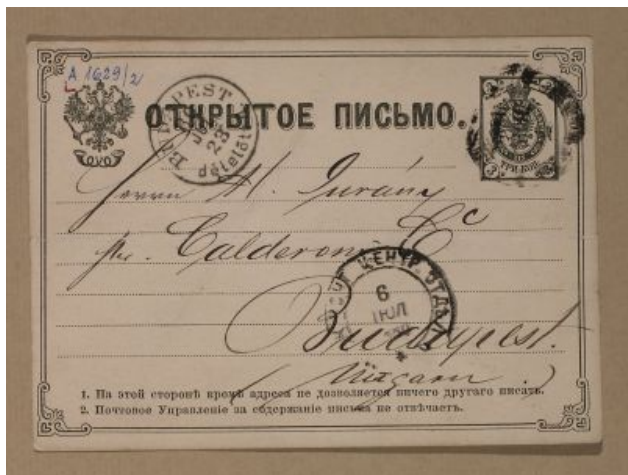 A 1629/2
BUDAPEST
23
délelőt
ОТКРЫТОЕ ПИСЬМО.
3 3
ТРИ КОП.
3 3
Herrn M. Jurány
pr. Calderoni & Cº
ЦЕНТР. ОТДѢЛ.
6
ІЮЛ
Budapest.
(Ungarn.)
1. На этой сторонѣ кромѣ адреса не дозволяется ничего другаго писать.
2. Почтовое Управленіе за содержаніе письма не отвѣчаетъ.